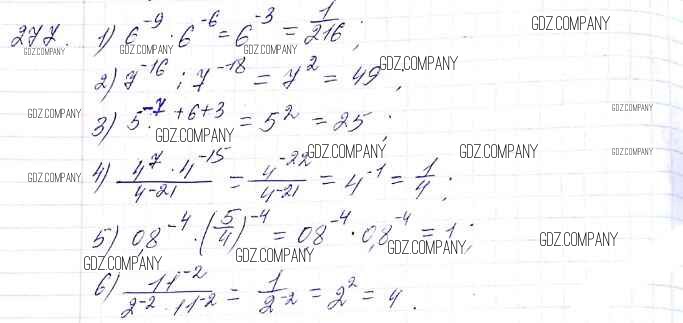 277. 1) 6^-9 · 6^-6 = 6^-3 = 1/216;
GDZ.COMPANY GDZ.COMPANY GDZ.COMPANY GDZ.COMPANY
2) 7^-16 : 7^-18 = 7^2 = 49;
GDZ.COMPANY
3) 5^-7+6+3 = 5^2 = 25;
GDZ.COMPANY GDZ.COMPANY GDZ.COMPANY
4) 4^7 · 4^-15 / 4^-21 = 4^-22 / 4^-21 = 4^-1 = 1/4;
GDZ.COMPANY GDZ.COMPANY GDZ.COMPANY GDZ.COMPANY
5) 0,8^-4 · (5/4)^-4 = 0,8^-4 · 0,8^-4 = 1;
GDZ.COMPANY GDZ.COMPANY GDZ.COMPANY GDZ.COMPANY
6) 11^-2 / 2^-2 · 11^-2 = 1 / 2^-2 = 2^2 = 4.